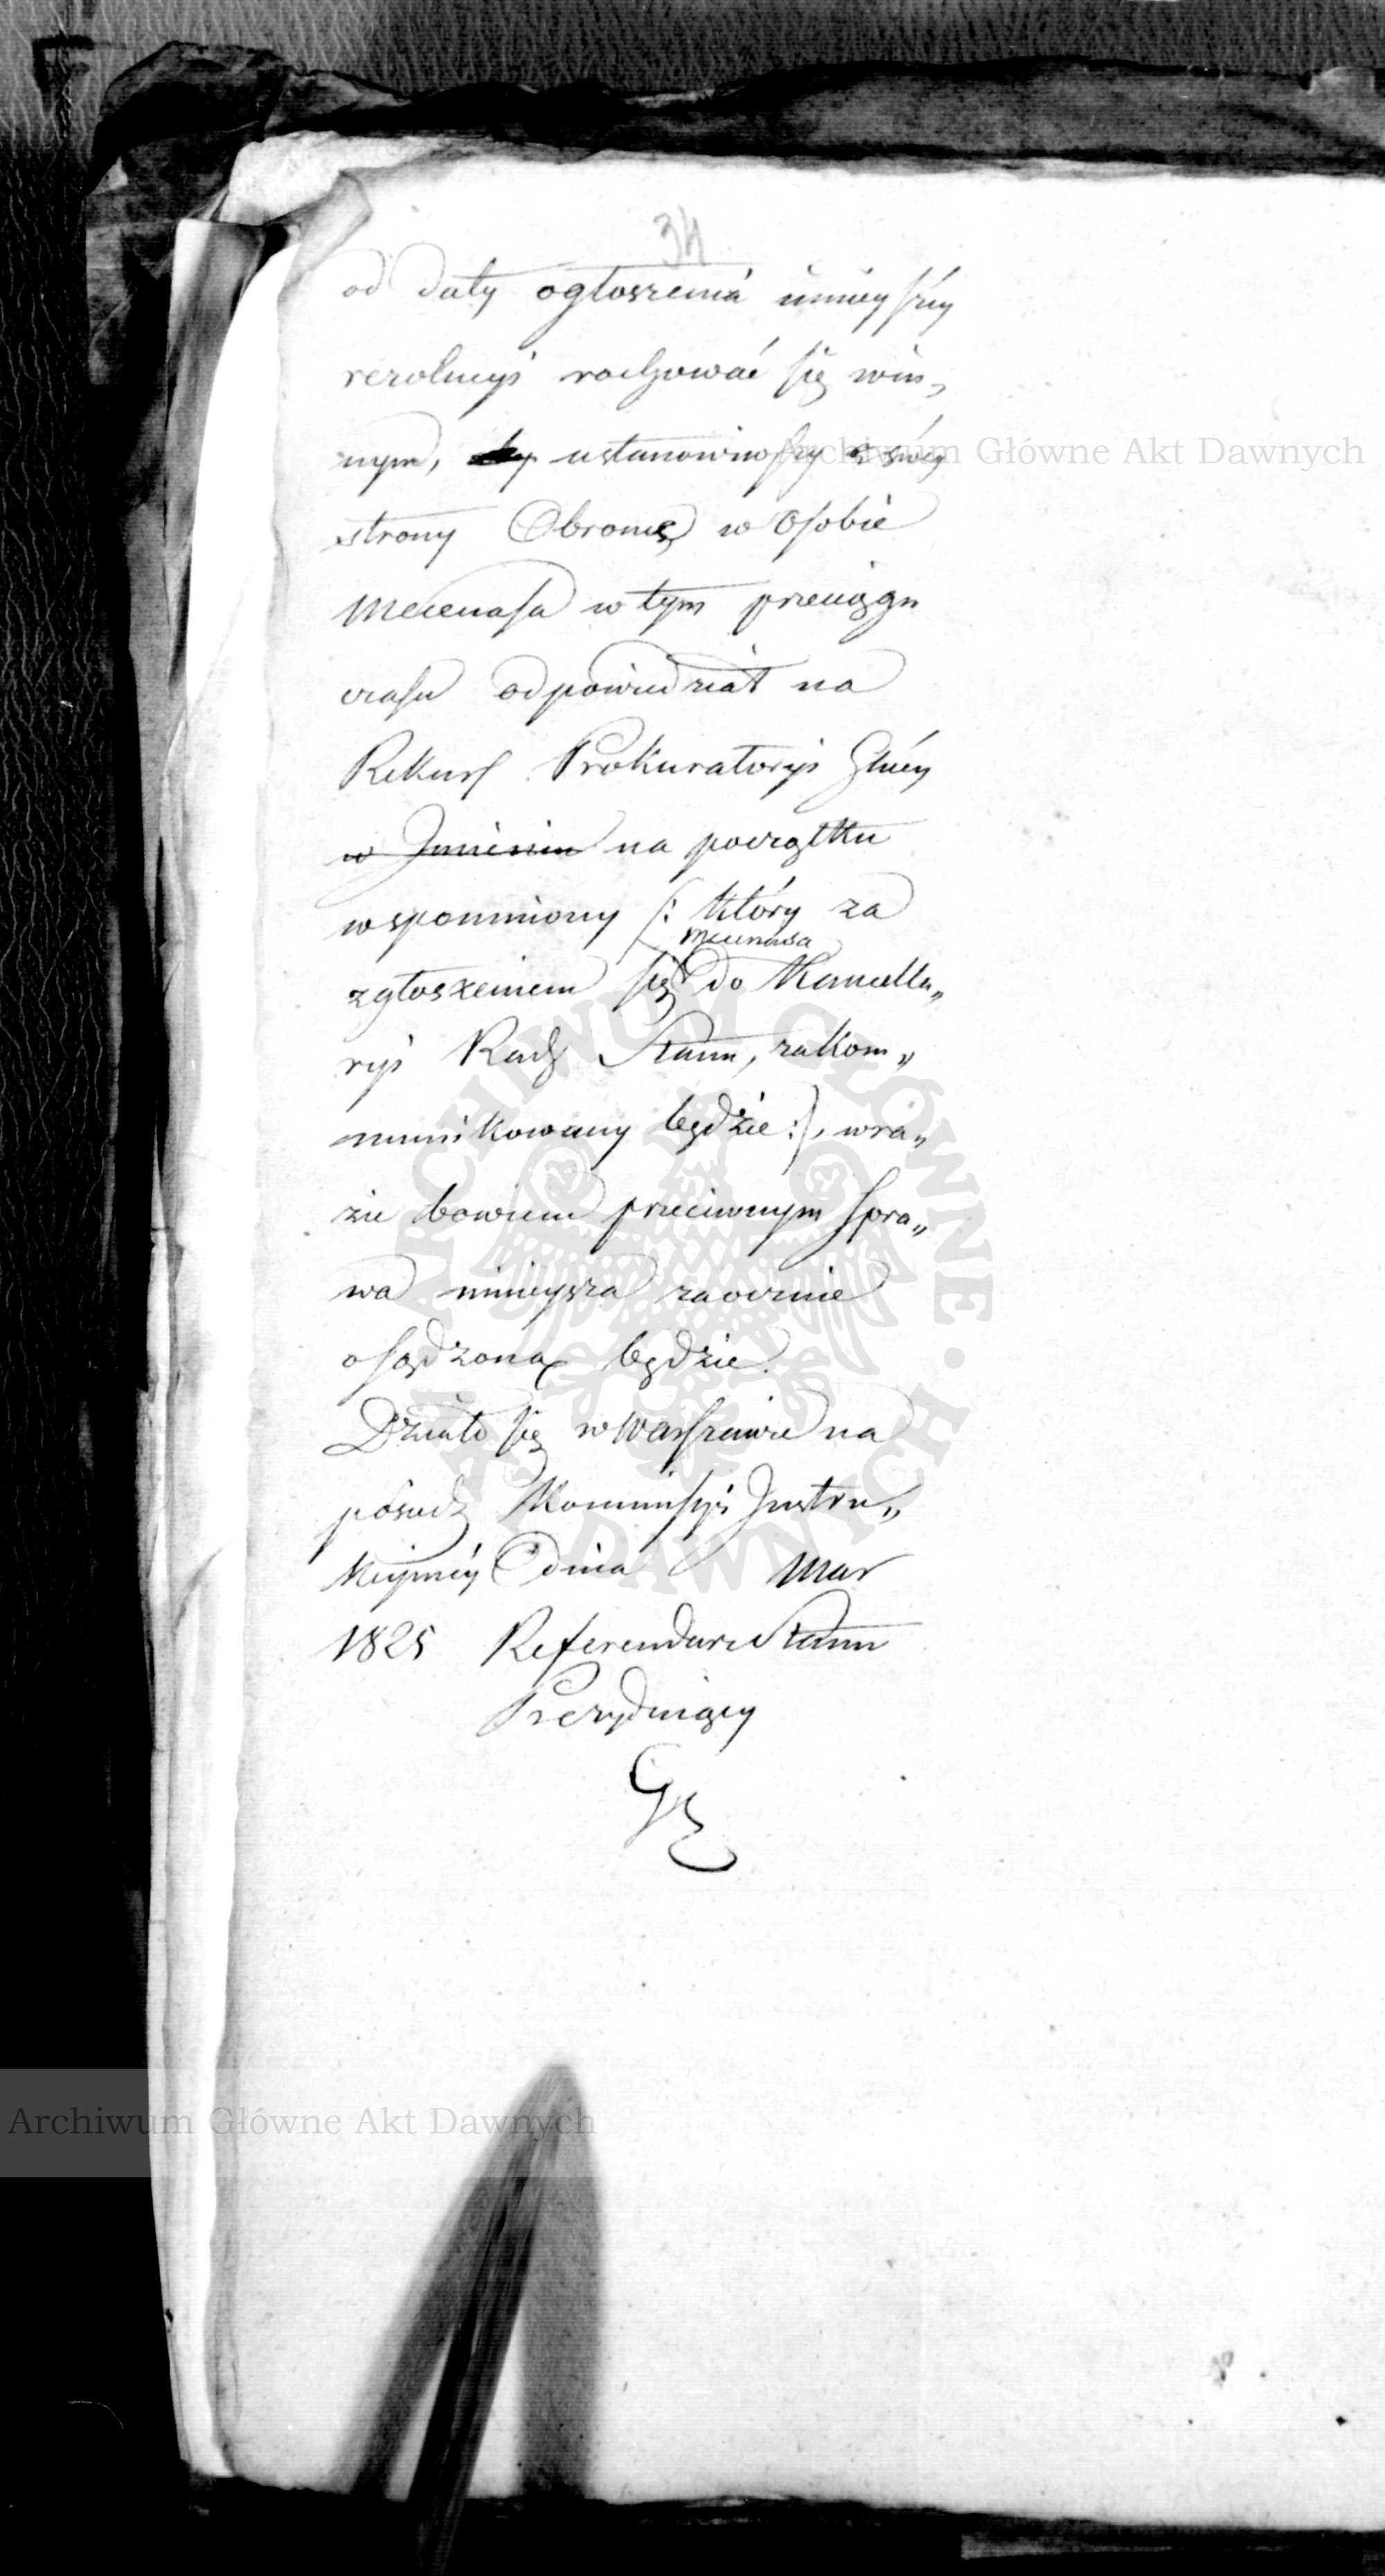 34
od daty ogłoszenia ninieyszéy
rezolucyi rachować się win„
nym, by ustanowiwszy z swéy
strony Obronę w Osobie
Mecenasa w tym przeciągu
czasu odpowiedział na
Rekurs Prokuratoryi Głnéy
w Imieniu na początku
wspomniony /: który za
Mecenasa
zgłoszeniem się do Kancella„
ryi Rady Stanu, zakom„
munikowany będzie :/, wra„
zie bowiem przeciwnym spra„
wa ninieysza zaocznie
osądzoną będzie.
Działo się w Warszawie na
posiedz Kommissyi Instru„
kcyinéy dnia Mar
1825 Referendarz Stanu
Prezyduiący
Archiwum Główne Akt Dawnych
ARCHIWUM GŁÓWNE AKT DAWNYCH
Archiwum Główne Akt Dawnych